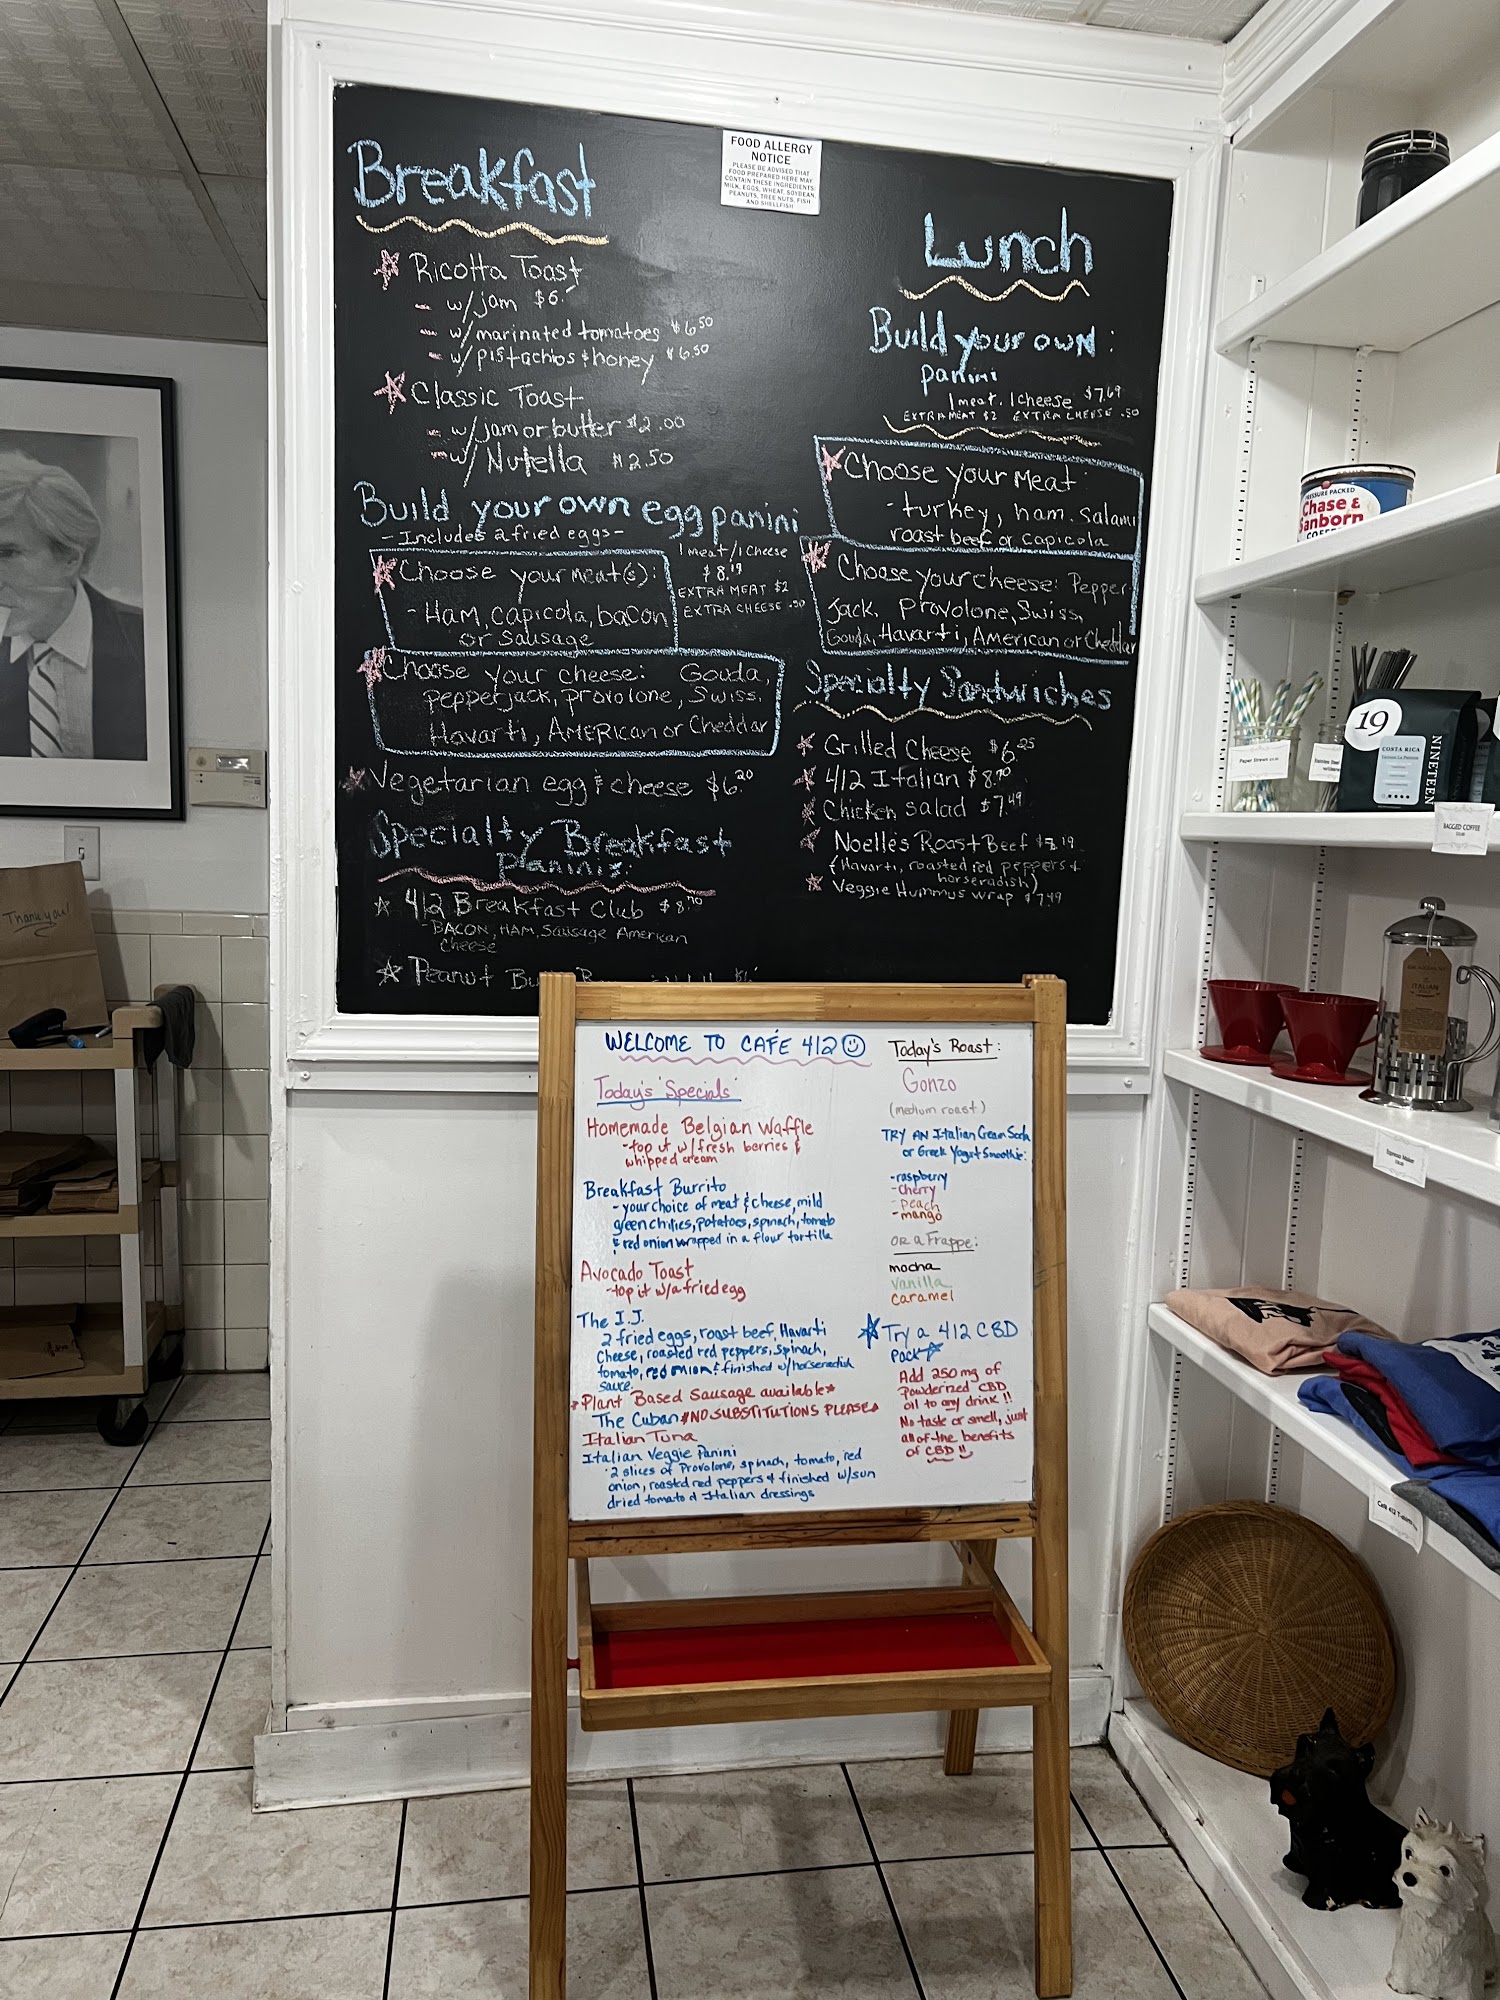 FOOD ALLERGY
NOTICE
PLEASE BE ADVISED THAT
FOOD PREPARED HERE MAY
CONTAIN THESE INGREDIENTS:
MILK, EGGS, WHEAT, SOYBEAN,
PEANUTS, TREE NUTS, FISH
AND SHELLFISH
Breakfast
Ricotta Toast
- w/jam $6.-
- w/marinated tomatoes $6.50
- w/pistachios & honey $6.50
Classic Toast
- w/jam or butter $2.00
- w/Nutella $2.50
Build your own egg panini
- Includes 2 fried eggs -
1 meat/1 cheese
$8.19
EXTRA MEAT $2
EXTRA CHEESE .50
Choose your meat(s):
- HAM, capicola, bacon
or sausage
Choose your cheese: Gouda,
pepperjack, provolone, Swiss,
Havarti, AMERICAN or Cheddar
Vegetarian egg & cheese $6.20
Specialty Breakfast
Paninis:
412 Breakfast Club $8.70
- BACON, HAM, Sausage American
Cheese
Peanut
Lunch
Build your own:
panini
1 meat. 1 cheese $7.69
EXTRA MEAT $2 EXTRA CHEESE .50
Choose your meat
- turkey, ham. salami
roast beef or capicola
Choose your cheese: Pepper
Jack. Provolone, Swiss,
Gouda, Havarti, American or Cheddar
Specialty Sandwiches
Grilled Cheese $6.25
412 Italian $8.70
Chicken Salad $7.49
Noelle's Roast Beef
(Havarti, roasted red peppers &
horseradish)
Veggie Hummus wrap $7.49
WELCOME TO CAFÉ 412
Today's 'Specials'
Homemade Belgian Waffle
- top it w/fresh berries &
whipped cream
Breakfast Burrito
- your choice of meat & cheese, mild
green chilies, potatoes, spinach, tomato
& red onion wrapped in a flour tortilla
Avocado Toast
- top it w/a fried egg
The I.J.
2 fried eggs, roast beef, Havarti
Cheese, roasted red peppers, spinach,
tomato, red onion & finished w/horseradish
sauce.
*Plant Based Sausage available*
The Cuban *NO SUBSTITUTIONS PLEASE*
Italian Tuna
Italian Veggie Panini
- 2 slices of Provolone, spinach, tomato, red
onion, roasted red peppers & finished w/sun
dried tomato & Italian dressings
Today's Roast:
Gonzo
(medium roast)
TRY AN Italian Cream Soda
or Greek Yogurt Smoothie:
- raspberry
- cherry
- peach
- mango
OR a Frappe:
mocha
vanilla
caramel
Try a 412 CBD
Pack
Add 250 mg of
Powderized CBD
oil to any drink!!
No taste or smell, just
all of the benefits
of CBD!!
Thank you!
PRESSURE PACKED
Chase &
Sanborn
COFFEE
19
COSTA RICA
NINETEEN
Paper Straws
BAGGED COFFEE
ITALIAN
Espresso Maker
Café 412 T-shirts